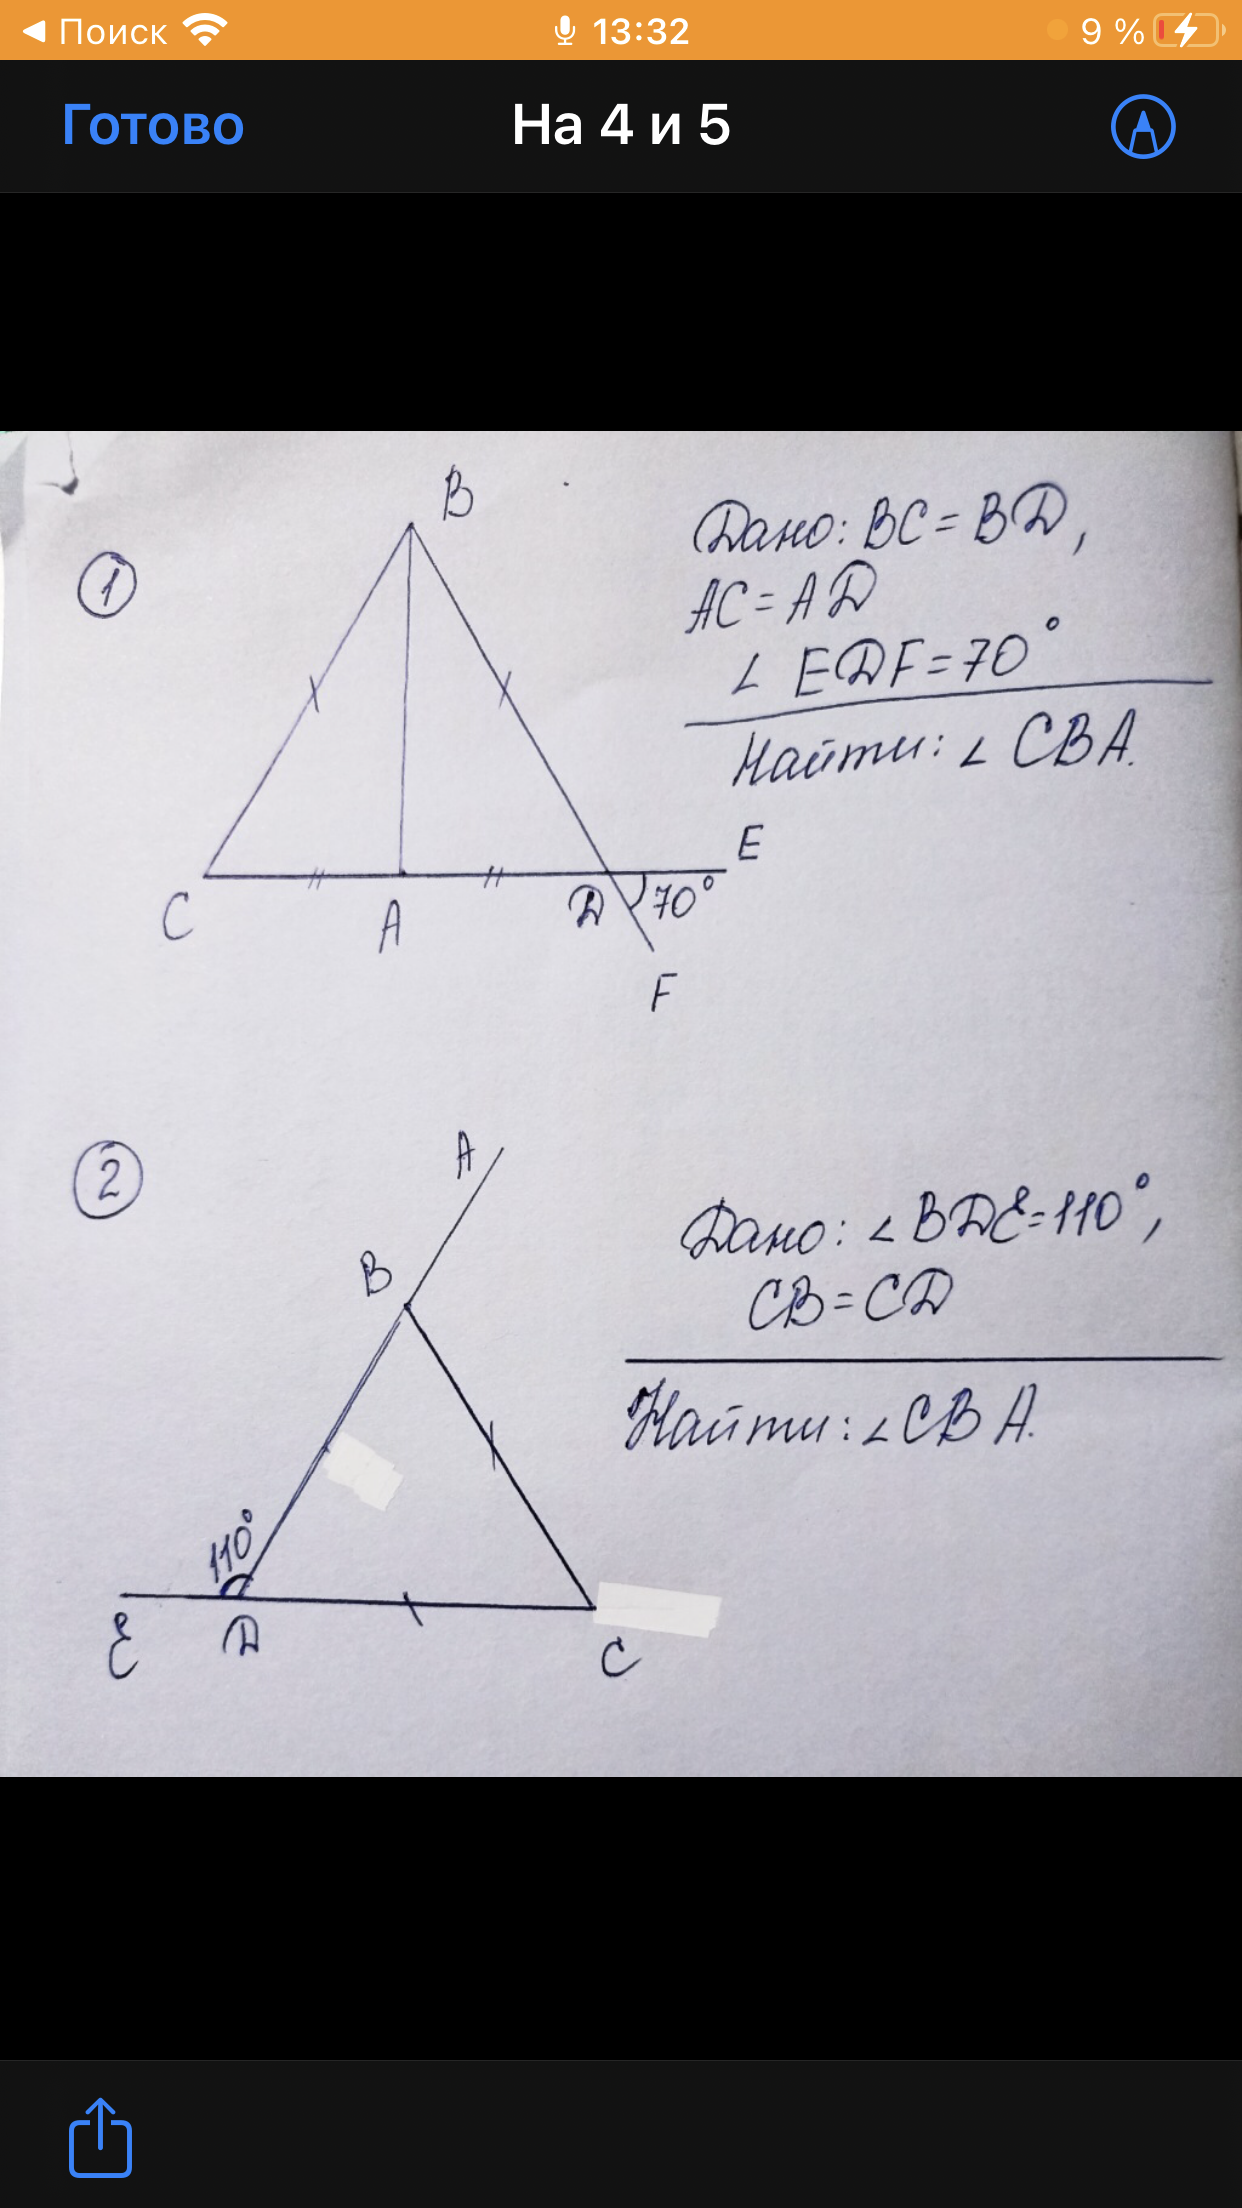 Поиск 13:32 9 %
Готово На 4 и 5
1
B
Дано: BC = BD,
AC = AD
∠ EDF = 70°
Найти: ∠ CBA.
E
C A D 70°
F
2
A
B
Дано: ∠ BDE = 110°,
CB = CD
Найти: ∠ CBA.
110°
E D C